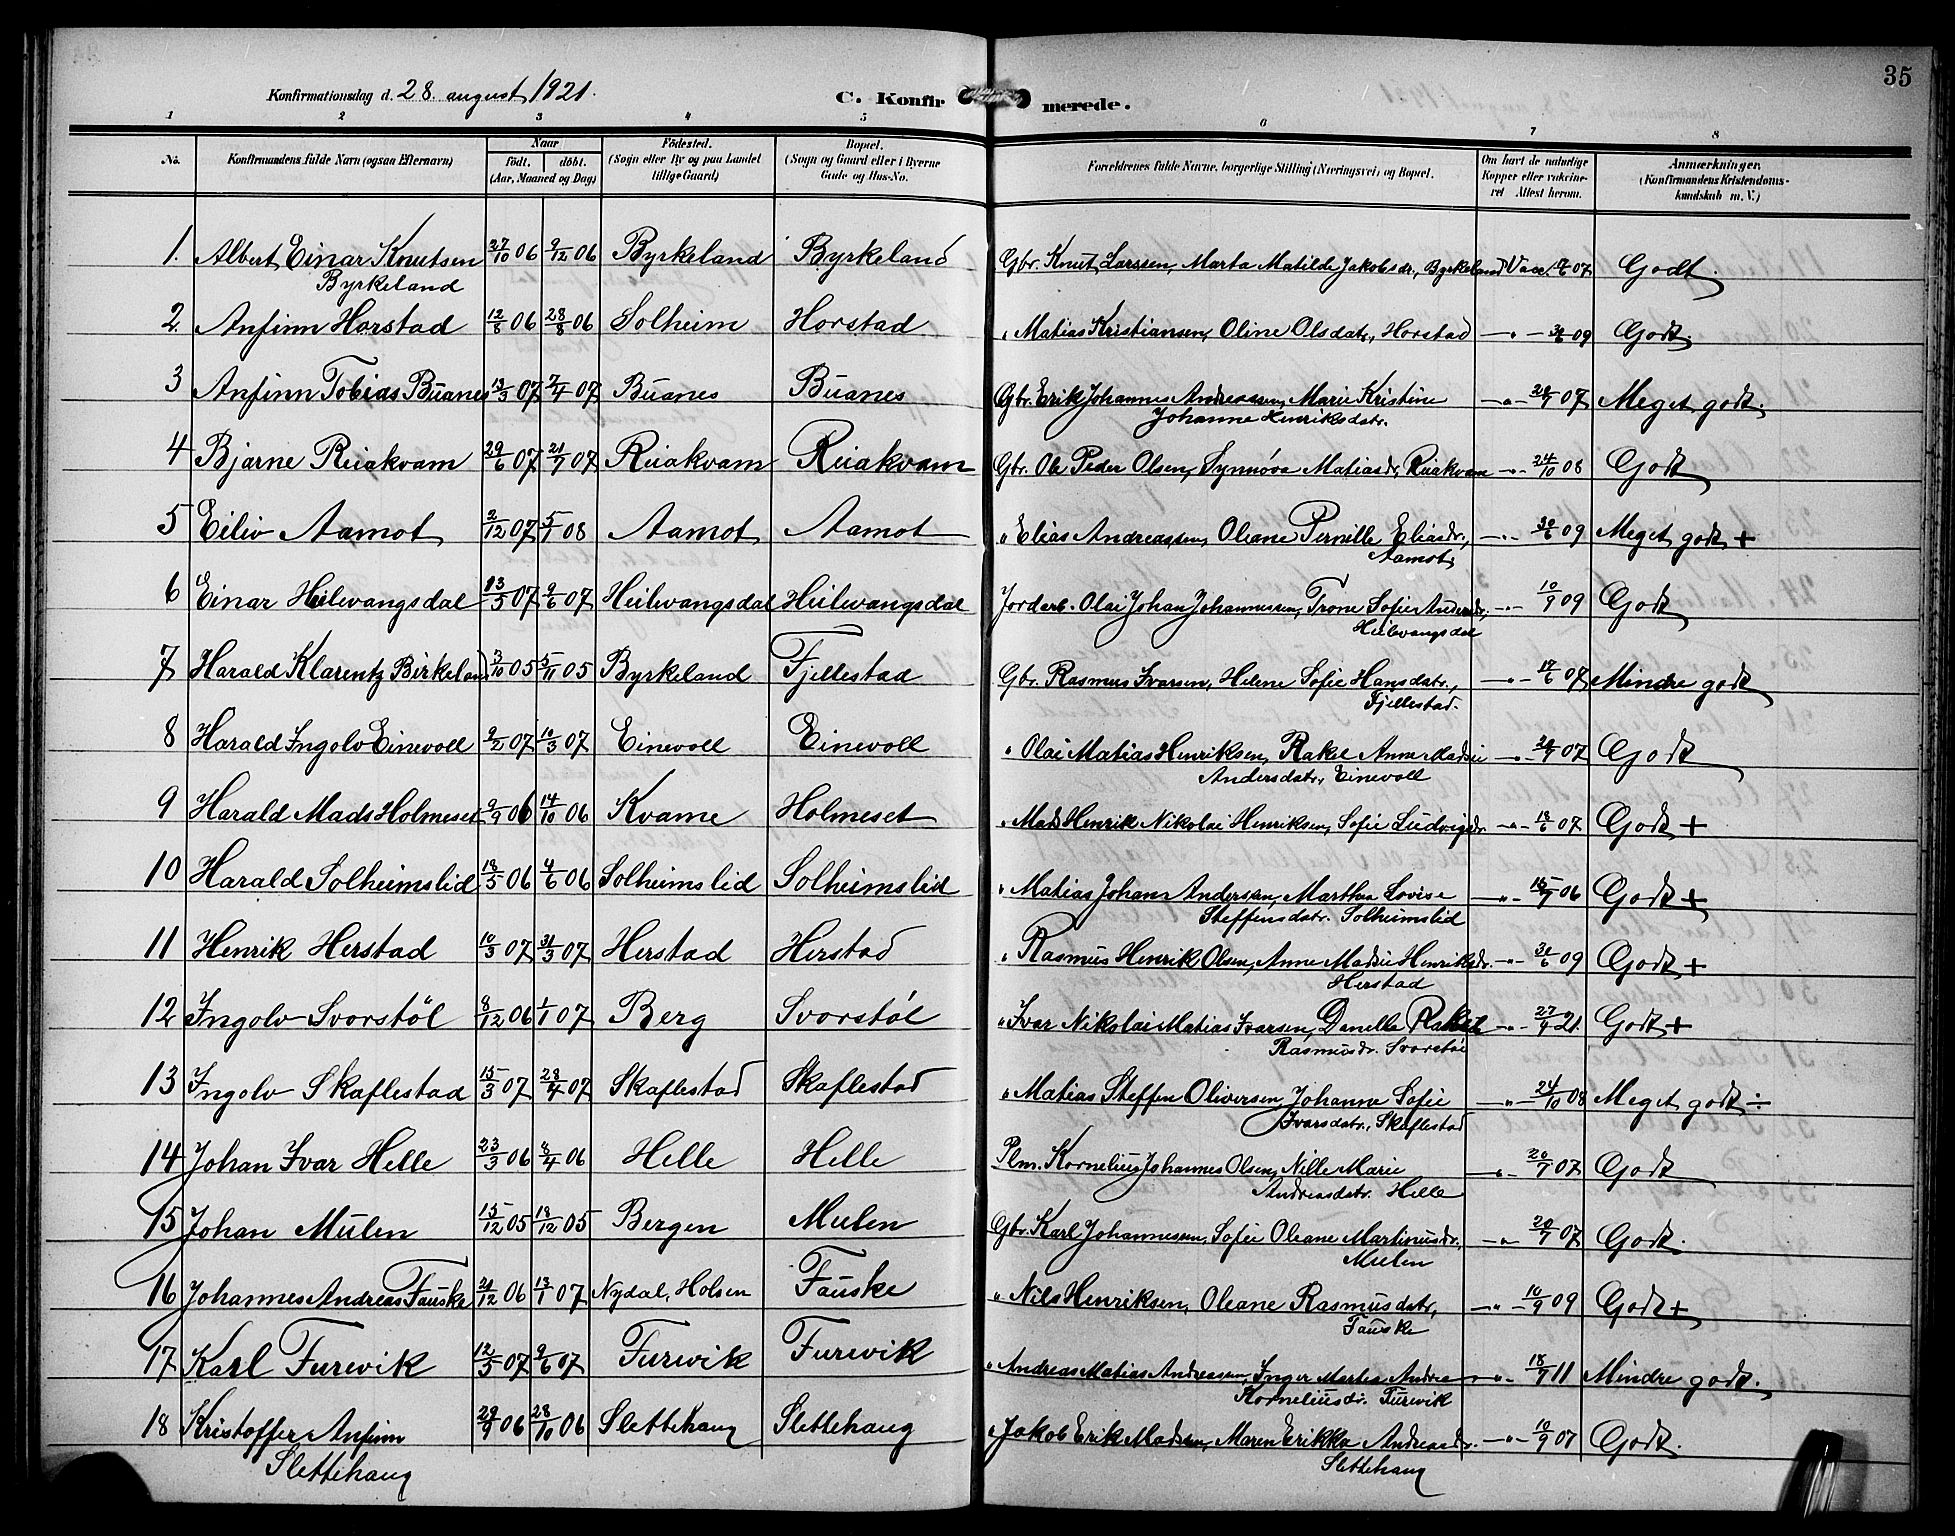 35
Konfirmationsdag d. 28. august 1921.
C. Konfirmerede.
1 2 3 4 5 6 7 8
No. | Konfirmandens fulde Navn (ogsaa Efternavn) | Naar født. døbt. (Aar, Maaned og Dag) | Fødested. (Sogn eller By og paa Landet tillige Gaard) | Bopæl. (Sogn og Gaard eller i Byerne Gade og Hus-No. | Forældrenes fulde Navne, borgerlige Stilling (Næringsvei) og Bopæl. | Om havt de naturlige Kopper eller vakcineret Attest herom. | Anmærkninger. (Konfirmandens Kristendomskundskab m. V.)
1. Albert Einar Knutsen 27/10 06 9/12 06 Byrkeland Byrkeland Gbr. Knut Larssen, Marta Matilde Jakobsdr., Byrkeland Vacc. 07 Godt.
Byrkeland
2 Anfinn Horstad 12/8 06 28/8 06 Solheim Horstad " Matias Kristiansen, Oline Olsdatr., Horstad — " — 09 Godt.
3 Anfinn Tobias Buanes 13/3 07 7/4 07 Buanes Buanes Gbr. Erik Johannes Andreassen, Marie Kristine — " — 07 Meget godt.
Johanne Henriksdatr.
4 Bjarne Ruakvam 29/6 07 21/7 07 Ruakvam Ruakvam Gbr. Ole Peder Olsen, Synnøva Matiasdr, Ruakvam — " — 24/10 08 Godt
5 Eiliv Aamot 2/12 07 5/1 08 Aamot Aamot " Elias Andreassen, Oleane Pernille Eliasdr., — " — 30/6 09 Meget godt +
Aamot
6 Einar Heilevangsdal 13/5 07 9/6 07 Heilevangsdal Heilevangsdal Jordarb. Olai Johan Johannessen, Trone Sofie — " — 10/9 09 Godt
Heilevangsdal
7 Harald Klarentz Birkeland 3/10 05 5/11 05 Byrkeland Fjellestad Gbr. Rasmus Ivarsen, Helene Sofie Hansdatr., — " — 17/6 07 Mindre godt
Fjellestad.
8 Harald Ingolv Einevoll 9/2 07 10/3 07 Einevoll Einevoll " Olai Matias Henriksen, Rakel Anne Madsie — " — 07 Godt
Andersdatr., Einevoll
9 Harald Mads Holmeset 9/9 06 14/10 06 Kvame Holmeset " Mads Henrik Nikolai Henriksen, Sofie Ludvigsdr. — " — 18/6 07 Godt +
10 Harald Solheimslid 18/5 06 4/6 06 Solheimslid Solheimslid " Matias Johan Andersen, Marthea Lovise — " — 06 Godt +
Steffensdatr. Solheimslid
11 Henrik Herstad 10/3 07 31/3 07 Herstad Herstad " Rasmus Henrik Olsen, Anne Madsie Henriksdr. — " — 30/6 09 Godt +
Herstad
12 Ingolv Svorstøl 8/12 06 1/1 07 Berg Svorstøl " Ivar Nikolai Matias Ivarsen, Danelle Rakel — " — 21. Godt +
Rasmusdr. Svorstøl
13 Ingolv Skaflestad 15/3 07 28/4 07 Skaflestad Skaflestad " Matias Steffen Oliversen, Johanne Sofie — " — 24/10 08 Meget godt ÷
Ivarsdatr., Skaflestad
14 Johan Ivar Helle 23/3 06 8/4 06 Helle Helle Plm. Kornelius Johannes Olsen, Nille Marie — " — 20/7 07 Godt
Andreasdatr. Helle
15 Johan Mulen 15/12 05 18/12 05 Bergen Mulen Gbr. Karl Johannessen, Sofie Oleane Martinusdr., — " — 20/7 07 Godt.
Mulen
16 Johannes Andreas Fauske 21/12 06 13/1 07 Nydal, Holsen Fauske " Nils Henriksen, Oleane Rasmusdatr, — " — 10/9 09 Godt +
Fauske
17 Karl Furevik 12/5 07 9/6 07 Furevik Furevik " Andreas Matias Andreassen, Inger Martea Andrea — " — 11 Mindre godt.
Korneliusdr. Furevik
18 Kristoffer Anfinn 29/9 06 28/10 06 Slettehaug Slettehaug " Jakob Erik Madsen, Maren Erikka Andreasdr. — " — 10/9 07 Godt.
Slettehaug Slettehaug